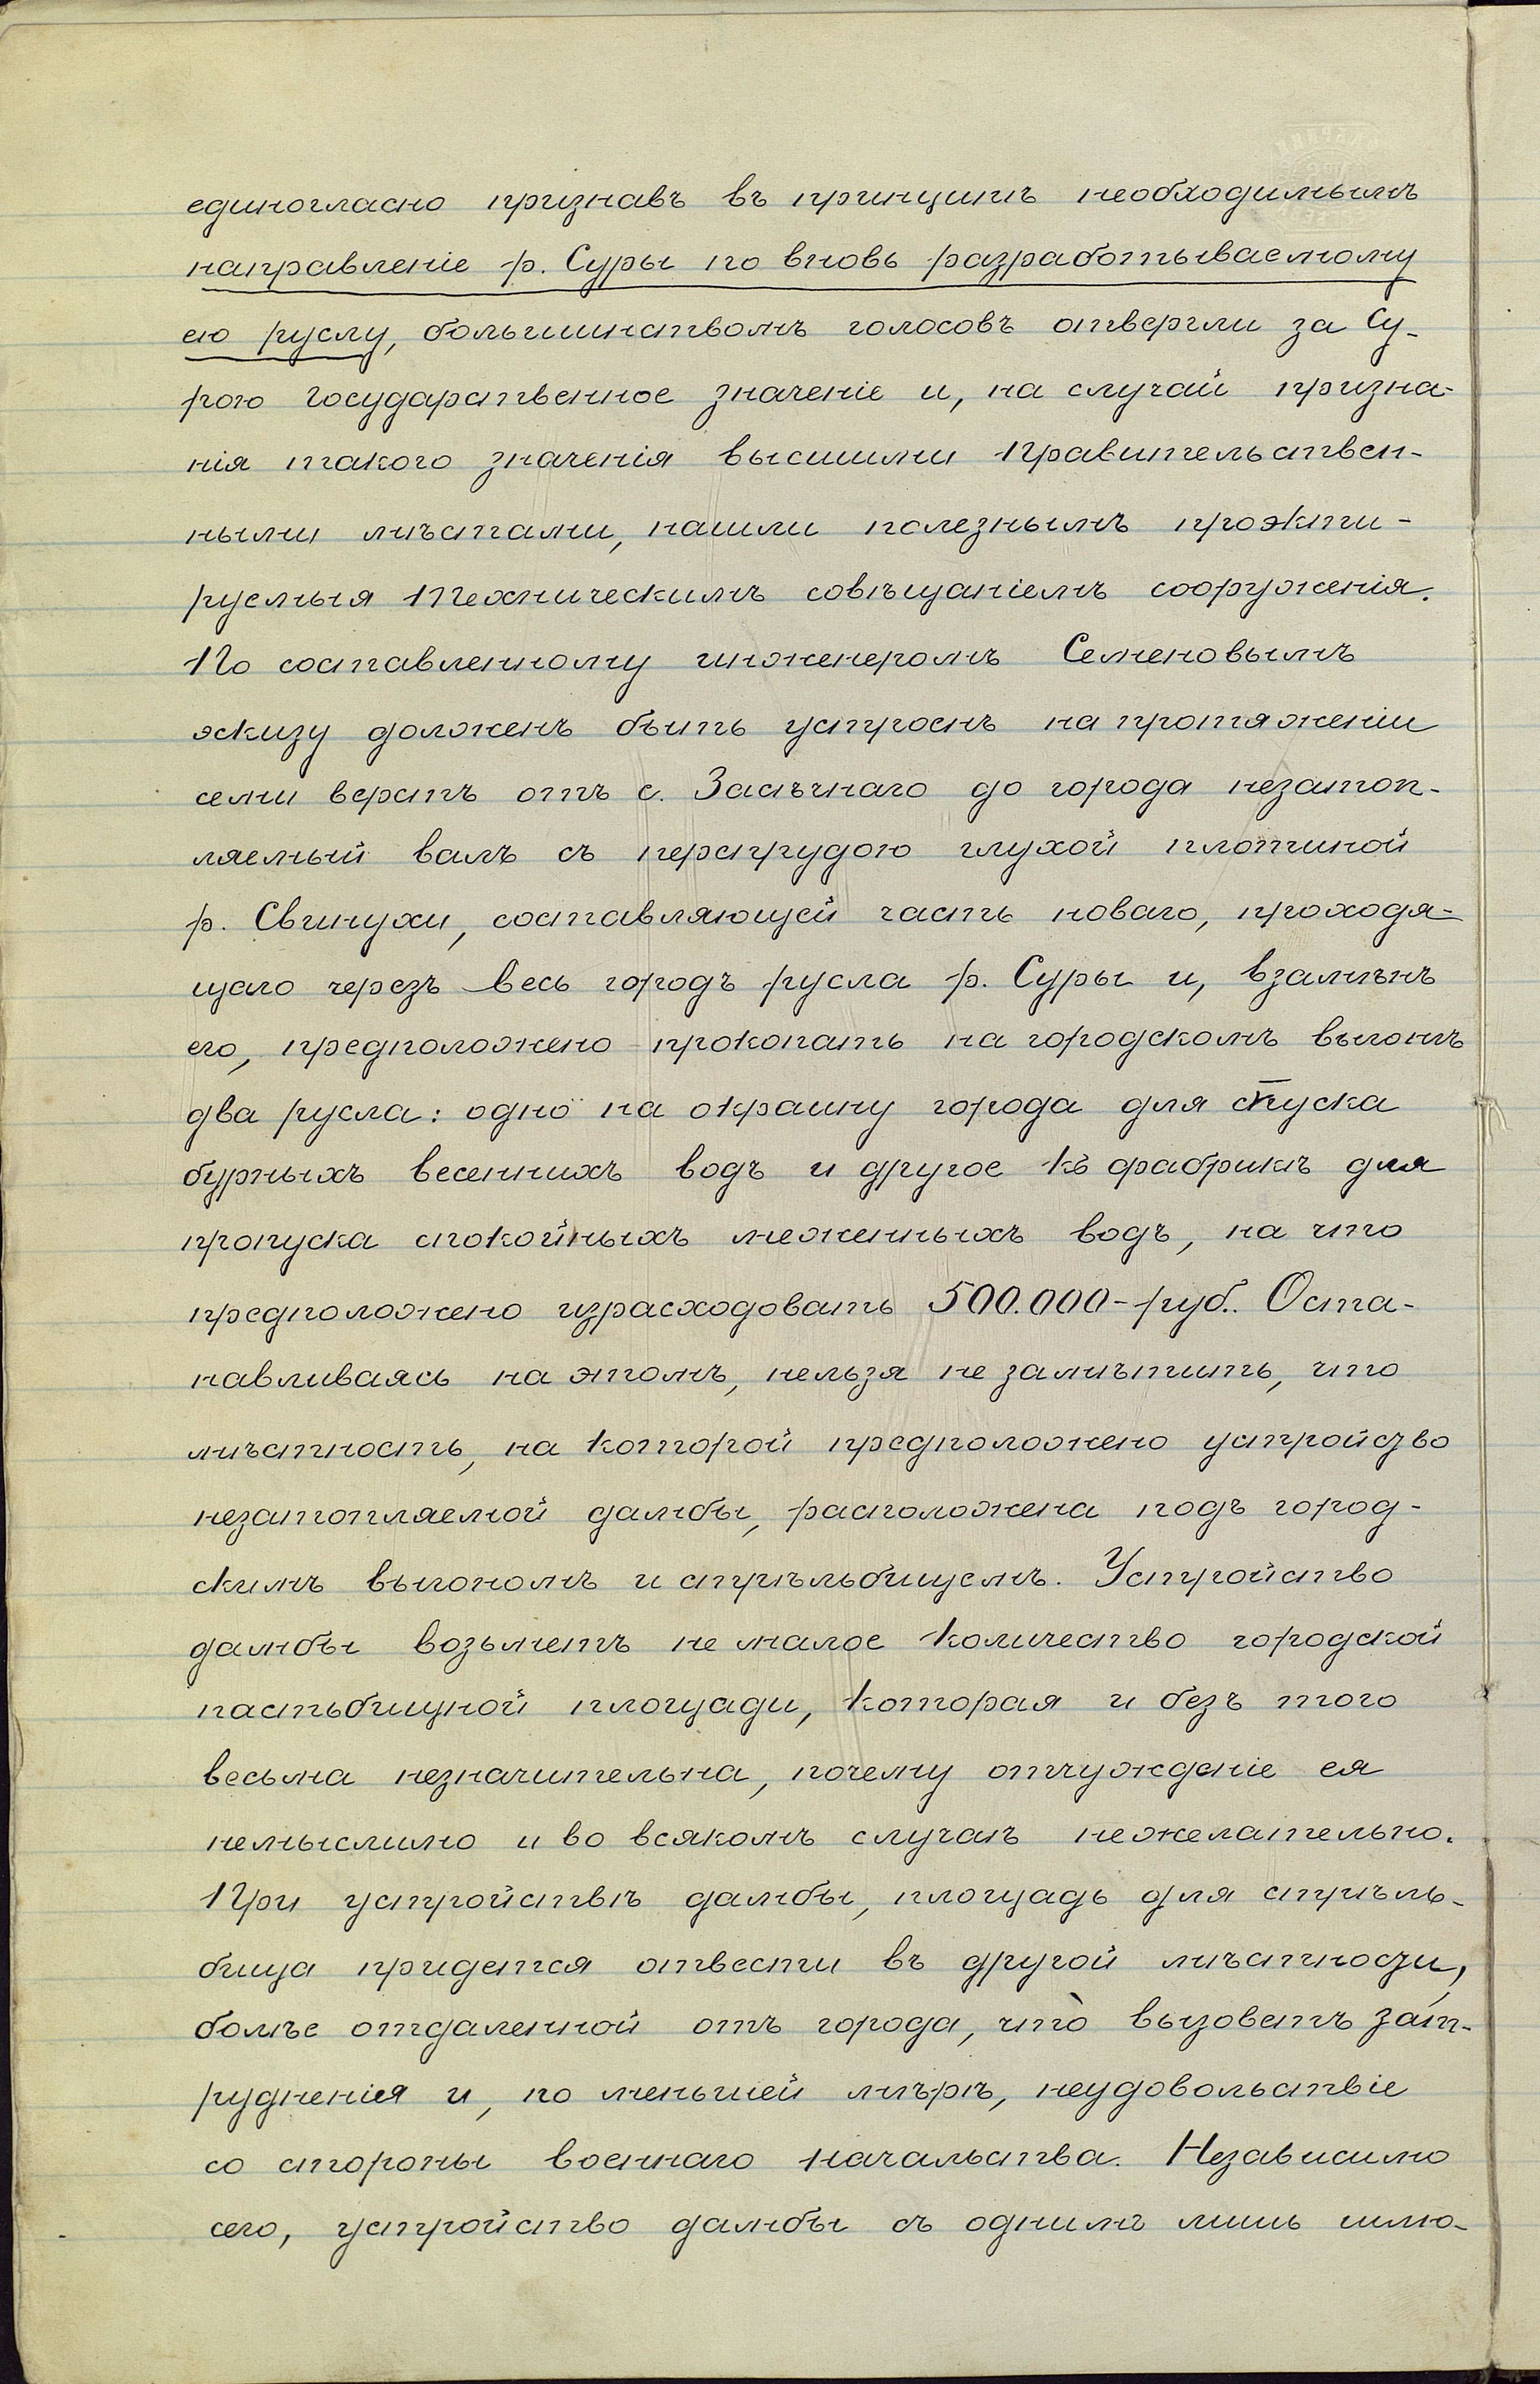 единогласно признавъ въ принципѣ необходимымъ
направленіе р. Суры по вновь разработываемому
ею руслу, большинствомъ голосовъ отвергли за Су-
рою Государственное значеніе и, на случай призна-
нія такого значенія высшими Правительствен-
ными мѣстами, нашли полезнымъ проэкти-
руемыя Техническимъ совѣщаніемъ сооруженія.
По составленному инженеромъ Семеновымъ
эскизу долженъ быть устроенъ на протяженіи
семи верстъ отъ с. Засѣчнаго до города незатоп-
ляемый валъ съ перепрудою глухой плотиной
р. Свинухи, составляющей часть новаго, проходя-
щаго черезъ весь городъ русла р. Суры и, взамѣнъ
его, предположено прокопать на городскомъ выгонѣ
два русла: одно на окраину города для спуска
бурныхъ весеннихъ водъ и другое къ фабрикѣ для
пропуска спокойныхъ меженныхъ водъ, на что
предположено израсходовать 500.000-руб. Оста-
навливаясь на этомъ, нельзя не замѣтить, что
мѣстность, на которой предположено устройство
незатопляемой дамбы, расположена подъ город-
скимъ выгономъ и стрѣльбищемъ. Устройство
дамбы возьметъ не малое количество городской
пастьбищной площади, которая и безъ того
весьма незначительна, почему отчужденіе ея
немыслимо и во всякомъ случаѣ нежелательно.
При устройствѣ дамбы, площадь для стрѣль-
бища придется отвести въ другой мѣстности,
болѣе отдаленной отъ города, что̀ вызоветъ зат-
рудненія и, по меньшей мѣрѣ, неудовольствіе
со стороны военнаго начальства. Независимо
сего, устройство дамбы съ однимъ лишь шлю-